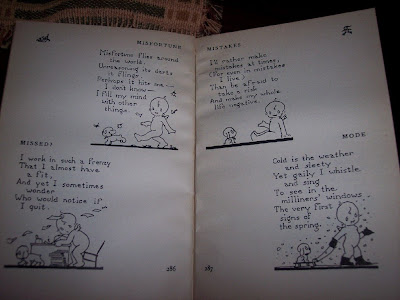 MISFORTUNE
Misfortune flies around
the world;
Unreasoning its darts
it flings.
Perhaps it hits me —
I don't know —
I fill my mind
with other
things.
MISSED?
I work in such a frenzy
That I almost have
a fit,
And yet I sometimes
wonder
Who would notice if
I quit.
286
MISTAKES
I'd rather make
mistakes at times,
(For even in mistakes
I live)
Than be afraid to
take a risk
And make my whole
life negative.
MODE
Cold is the weather
and sleety
Yet gaily I whistle
and sing
To see in the
milliners' windows
The very first
signs of
the spring.
287